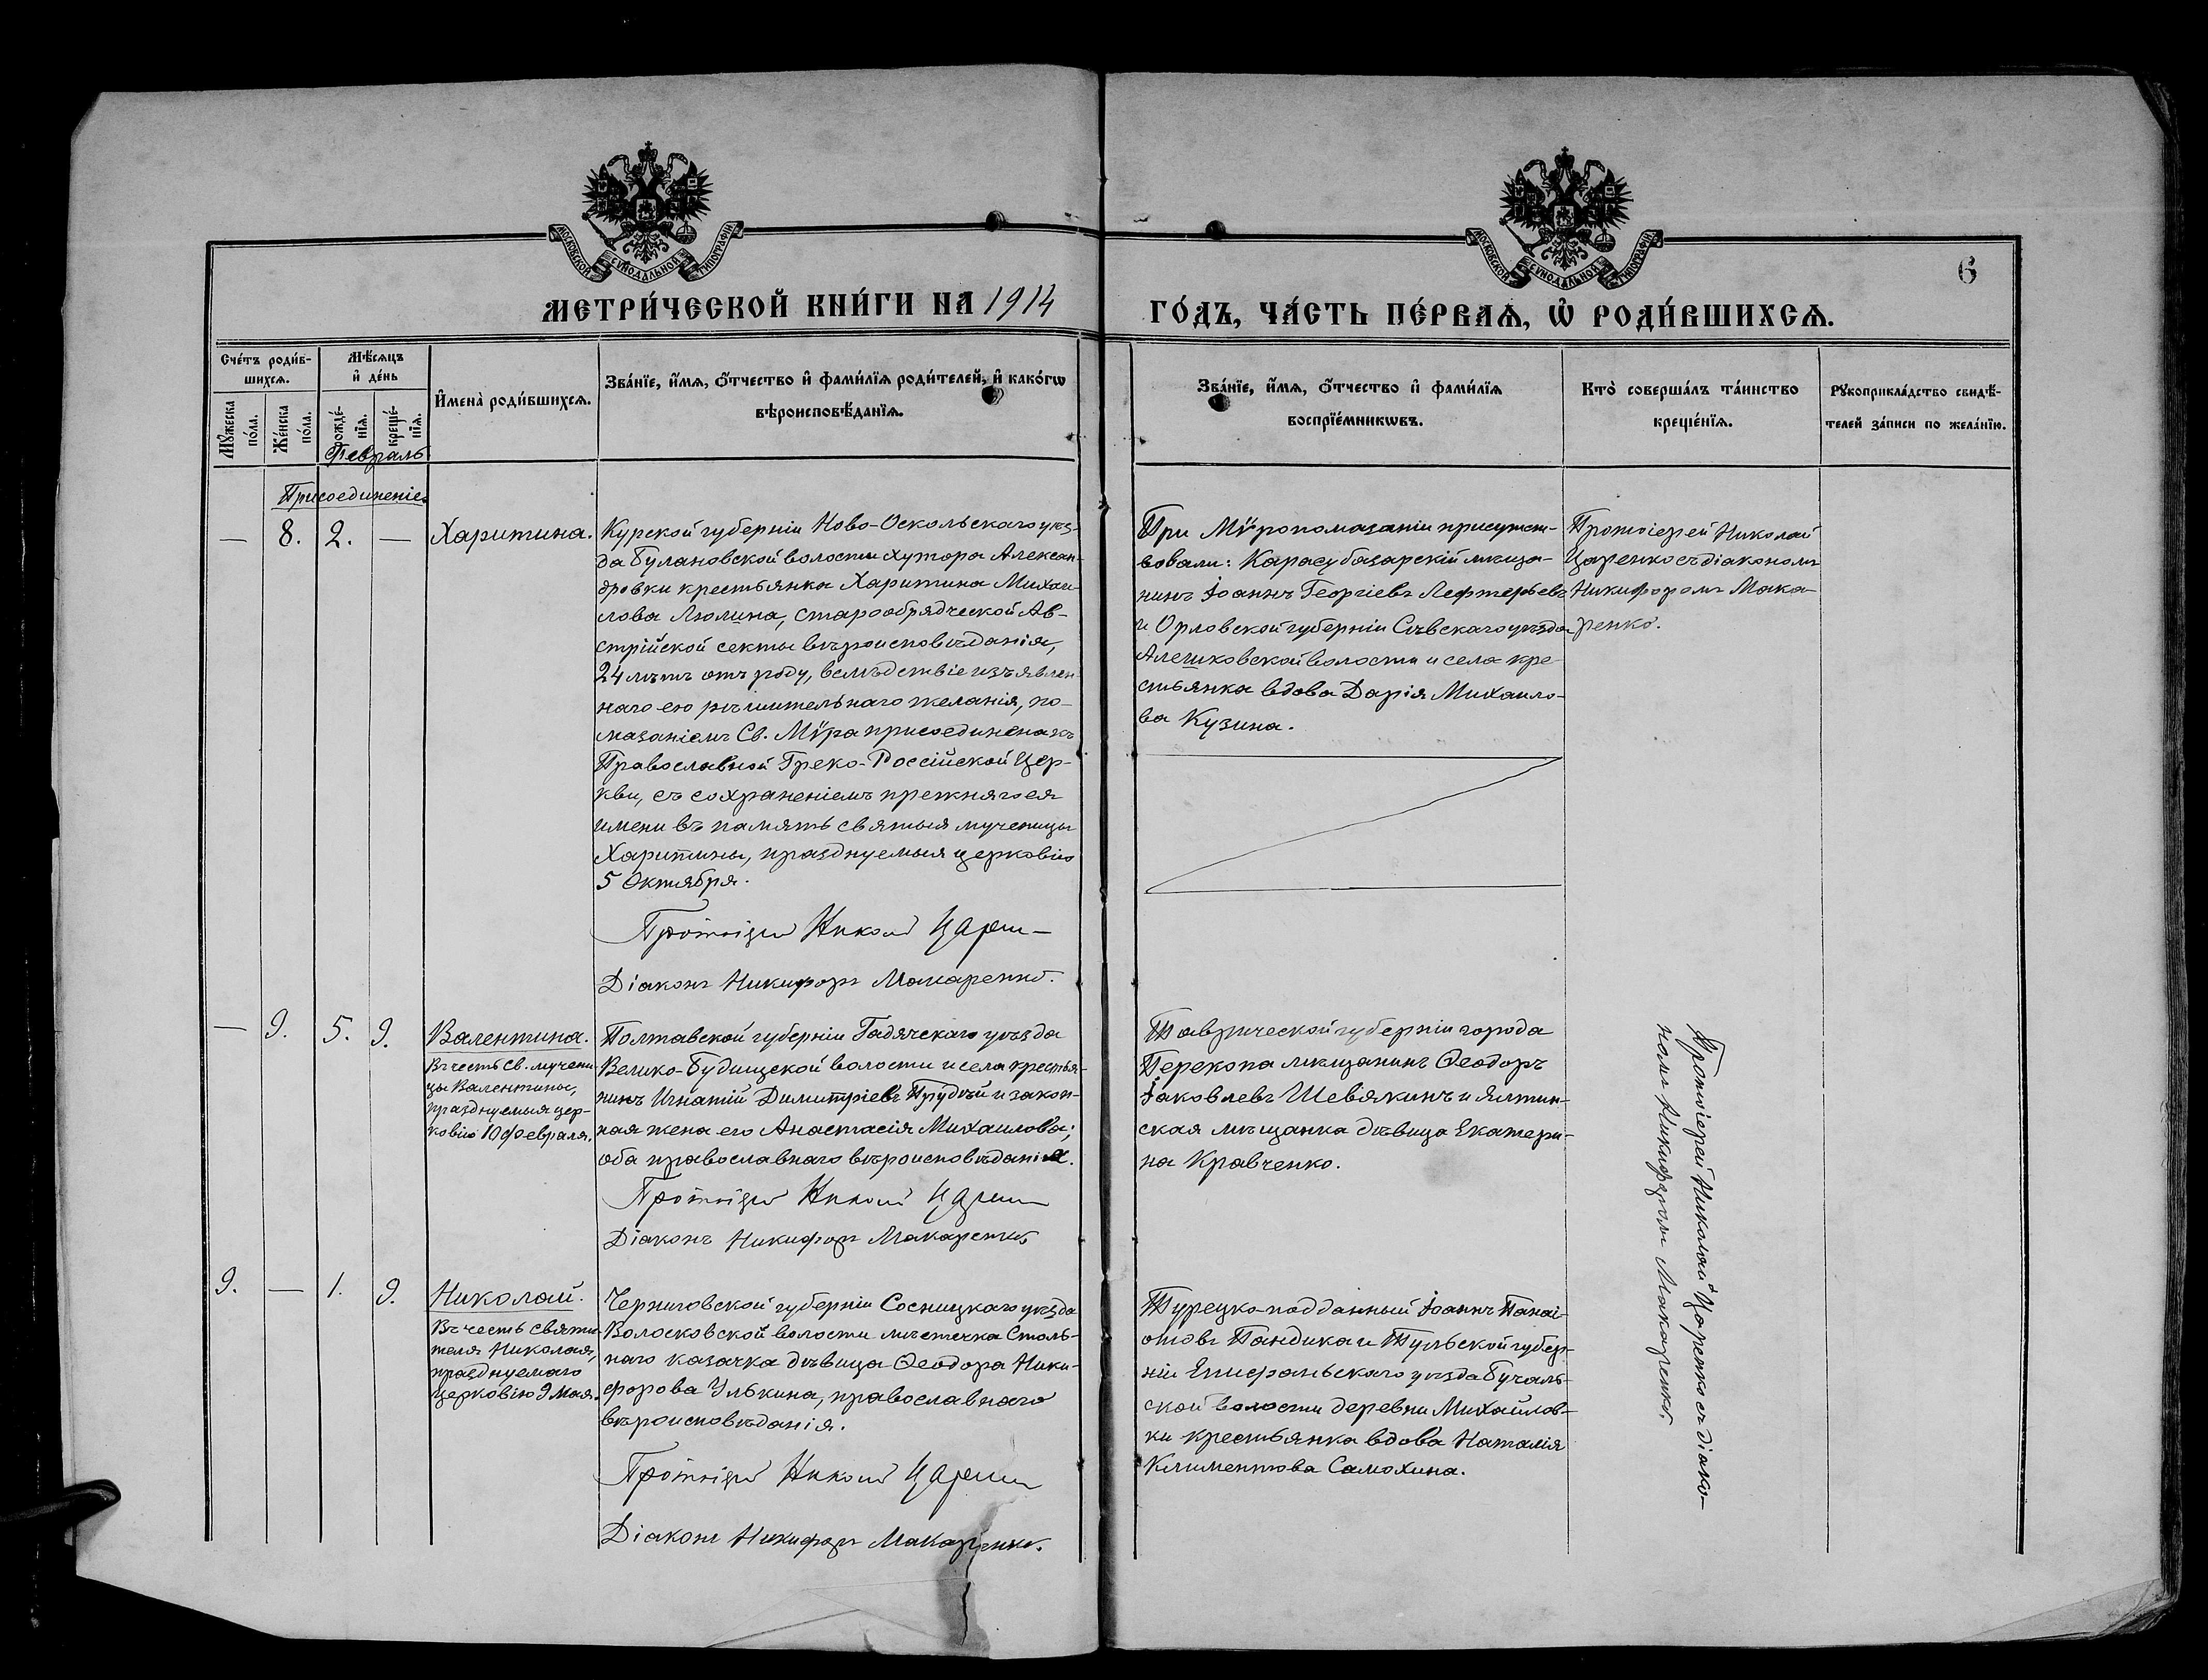 МОСКОВСКОЙ СѴНОДАЛЬНОЙ ТИПОГРАФІИ
МОСКОВСКОЙ СѴНОДАЛЬНОЙ ТИПОГРАФІИ
6
МЕТРИ́ЧЕСКОЙ КНИ́ГИ НА 1914
ГО́ДЪ, ЧА́СТЬ ПЕ́РВАѦ, Ѡ҆ РОДИ́ВШИХСѦ.
Сче́тъ роди́в-
шихсѧ.
Мꙋ́жеска
по́ла.
Же́нска
по́ла.
Мѣ́сѧцъ
и҆ де́нь
рожде́-
нїѧ.
креще́-
нїѧ.
Февраль
И҆мена̀ роди́вшихсѧ.
Зва́нїе, и҆́мѧ, ѻ҆́тчество и҆ фами́лїѧ роди́телей, и҆ како́гѡ
вѣроисповѣ́данїѧ.
Зва́нїе, и҆́мѧ, ѻ҆́тчество и҆ фами́лїѧ
воспрїе́мникѡвъ.
Кто̀ соверша́лъ та́инство
креще́нїѧ.
Рꙋкоприкла́дство свидѣ́-
телей за́писи по жела́нїю.
Присоединеніе
— 8. 2. — Харитина.
Курской губерніи Ново-Оскольскаго уѣз-
да Булановской волости хутора Алексан-
дровки крестьянка Харитина Михаи-
лова Люлина, старообрядческой Ав-
стрійской секты вѣроисповѣданія,
24 лѣтъ отъ роду, вслѣдствіе изъявлен-
наго ею рѣшительнаго желанія, по-
мазаніемъ Св. Мѵра присоединена къ
Православной Греко-Россійской Цер-
кви, съ сохраненіемъ прежняго ея
имени въ память святыя мученицы
Харитины, празднуемыя церковію
5 Октября.
Протоіерей Николай Царенко
Діаконъ Никифоръ Макаренко.
При Мѵропомазаніи присутст-
вовали: Карасубазарскій мѣща-
нинъ Іоаннъ Георгіевъ Лефтерьевъ
и Орловской губерніи Сѣвскаго уѣзда
Алешковской волости и села кре-
стьянка вдова Дарія Михаило-
ва Кузина.
Протоіерей Николай
Царенко съ діакономъ
Никифоромъ Мака-
ренко.
— 9. 5. 9. Валентина.
Въ честь Св. мучени-
цы Валентины,
празднуемыя цер-
ковію 10 февраля.
Полтавской губерніи Гадячскаго уѣзда
Велико-Будищской волости и села крестья-
нинъ Игнатій Димитріевъ Прудкій и закон-
ная жена его Анастасія Михаилова;
оба православнаго вѣроисповѣданія.
Протоіерей Николай Царенко
Діаконъ Никифоръ Макаренко
Таврической губерніи города
Перекопа мѣщанинъ Ѳеодоръ
Іаковлевъ Шевякинъ и Ялтин-
ская мѣщанка дѣвица Екатери-
на Кравченко.
Протоіерей Николай Царенко съ діако-
номъ Никифоромъ Макаренко.
9. — 1. 9. Николай.
Въ честь Святи-
теля Николая,
празднуемаго
церковію 9 Мая.
Черниговской губерніи Сосницкаго уѣзда
Волосковской волости мѣстечка Столь-
наго казачка дѣвица Ѳеодора Ники-
форова Улькина, православнаго
вѣроисповѣданія.
Протоіерей Николай Царенко
Діаконъ Никифоръ Макаренко.
Турецко-подданный Іоаннъ Панаі-
отовъ Пандика и Тульской губер-
ніи Епифаньскаго уѣзда Бучаль-
ской волости деревни Михайлов-
ки крестьянка вдова Наталія
Климентова Самохина.